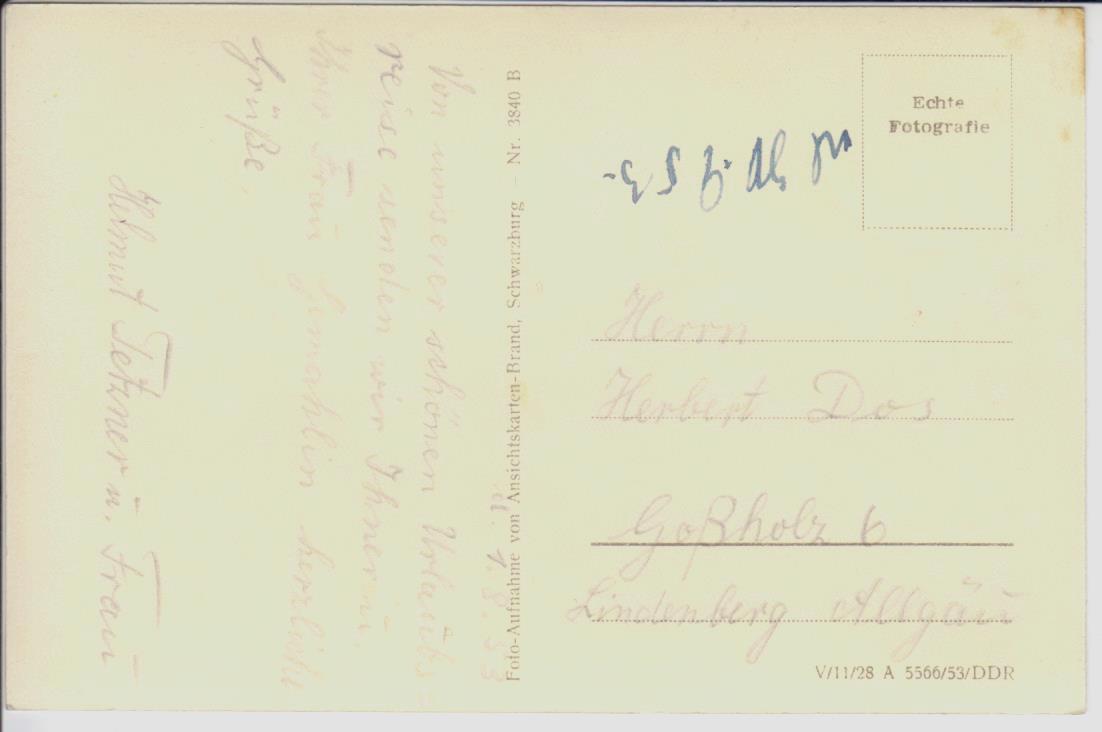 d. 1. 8. 53
Von unserer schönen Urlaubs-
reise senden wir Ihnen u.
Ihrer Frau Gemahlin herzliche
Grüße.
Helmut Tetzner u. Frau
Foto-Aufnahme von Ansichtskarten-Brand, Schwarzburg – Nr. 3840 B
Echte
Fotografie
Herrn
Herbert Dos
Goßholz 6
Lindenberg Allgäu
V/11/28 A 5566/53/DDR